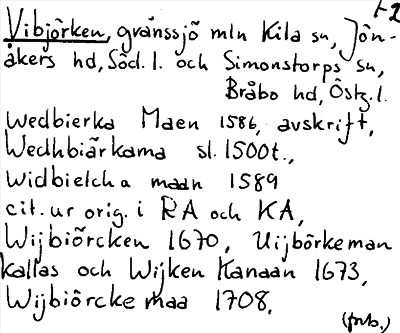 1-2
Vibjörken, gränssjö mln Kila sn, Jön-
åkers hd, Södl. l. och Simonstorps sn,
Bråbo hd, Östg. l.
Wedbierka Maen 1586, avskrift,
Wedhbiärkama sl. 1500t.,
Widbielcha maan 1589
cit. ur orig. i RA och KA,
Wijbiörcken 1670, Uijbörkeman
kallas och Wijken Kanaan 1673,
Wijbiörcke maa 1708,
(frb.)